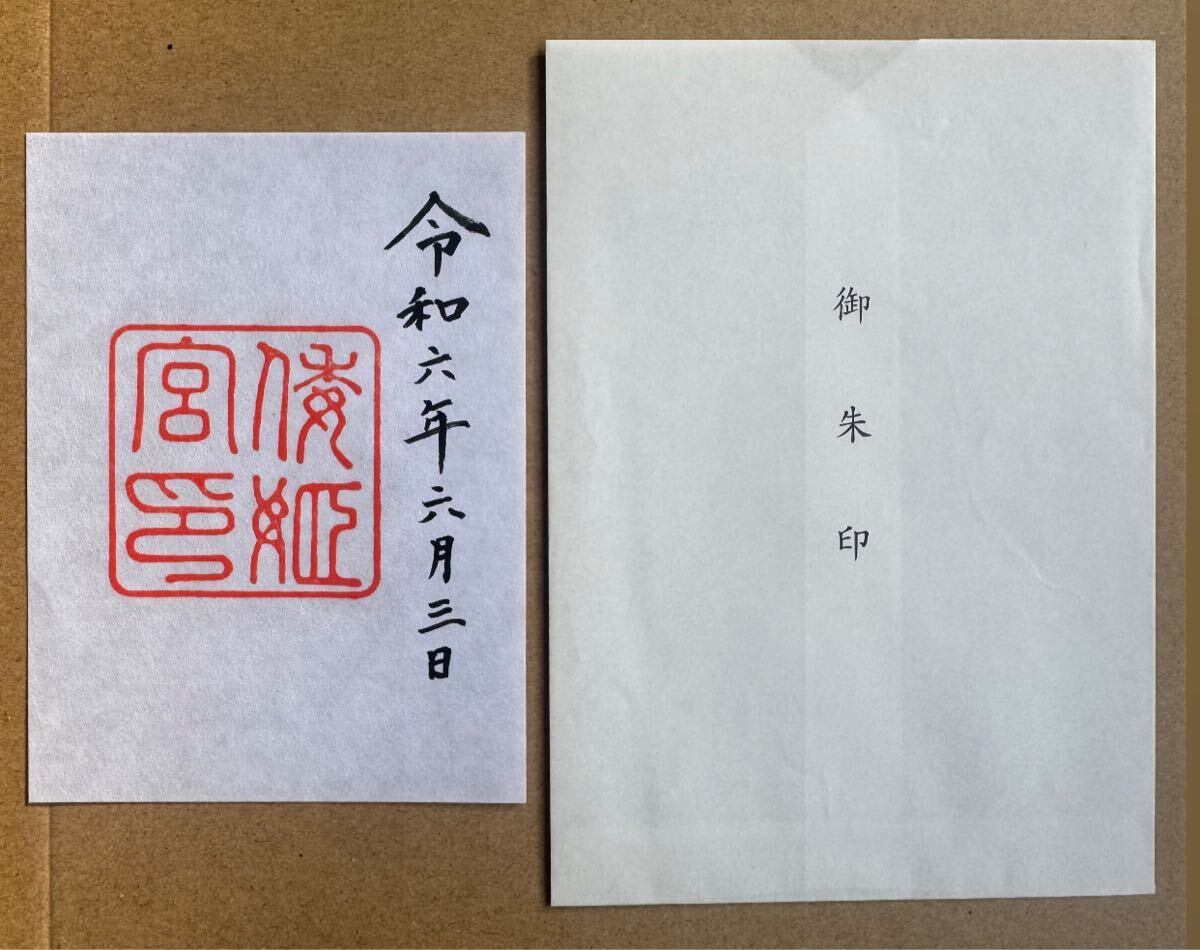 令和六年六月三日
倭姫
宮印
御朱印